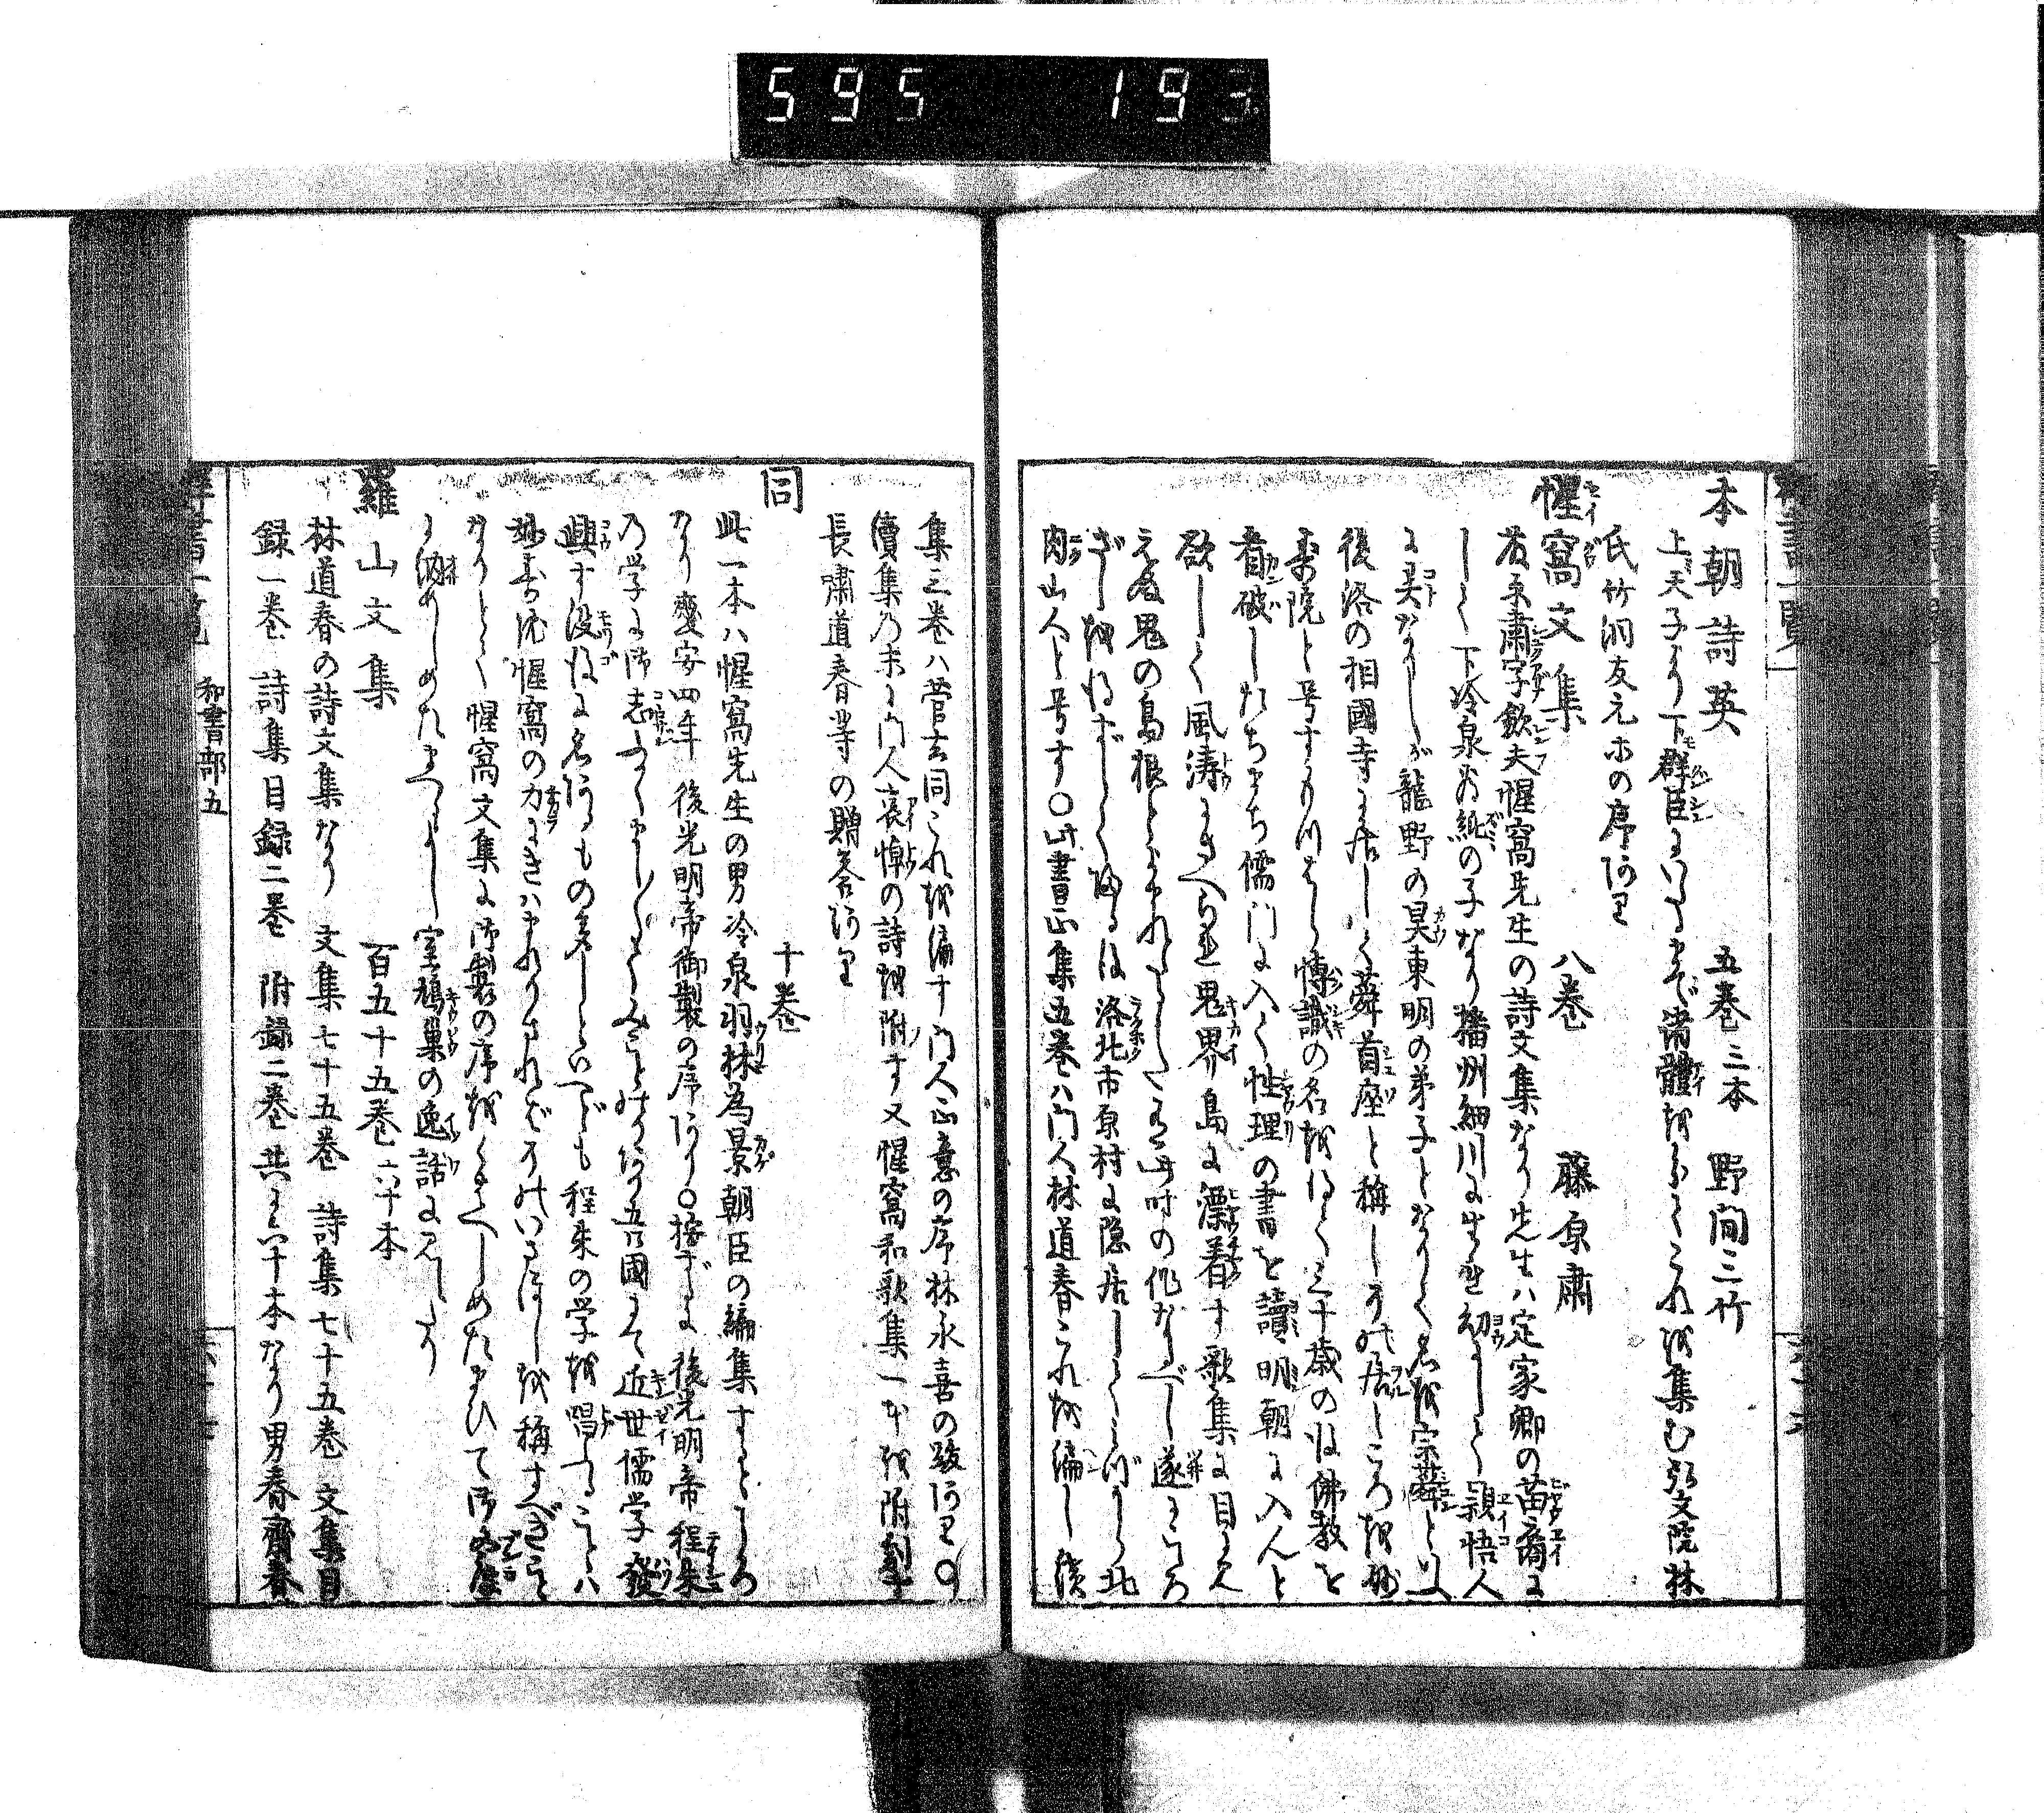 595 19
本朝詩英 五巻 三本 野間三竹
上天子より下群臣にいたるまで諸體をわかてこれを集む弘文院林
氏竹洞友元ホの序アリ
惺窩文集 八巻 藤原肅
藤原肅字歛夫惺窩先生の詩文集なり先生ハ定家卿の苗裔に
して下冷泉為純の子なり播州細川に生る幼にして穎悟人
に異なりしが龍野の昊東明の弟子となりて名を宗蕣といふ
後洛の相國寺に居して蕣首座と稱しその居ところを妙
壽院と号す博識の名をほく三十歳の後佛教を
看破したちまち儒門に入て性理の書を讀明朝に入んと
欲して風涛にさへられ鬼界島に漂着す歌集に目にみ
えぬ鬼の島根と 此時の作なるべし遂にこゝろ
ざしを 歸る後洛北市原村に隠居してみづから北
肉山人と号す〇此書正集五巻ハ門人林道春これを編し續
集三巻ハ菅玄同これを編す門人正意の序林永喜の跋アリ〇
續集乃末に門人哀悼の詩を附す又惺窩和歌集一本を附刻す
長嘯道春等の贈答アリ
同 十巻
此一本ハ惺窩先生の男冷泉羽林為景朝臣の編集するところ
なり慶安四年後光明帝御製の序アリ〇按ずるに後光明帝程朱
乃学に御志ふかくましく 吾國にて近世儒学發
興す没後に名アるもの多しといへども程朱の学を唱ふることハ
妙壽院惺窩の力 を稱すべきこと
なりとて惺窩文集に御製の序をくはへしめたまひて御文庫
に納めしめたまへるよし室鳩巣の逸話に見えたり
羅山文集 百五十五巻 六十本
林道春の詩文集なり 文集七十五巻 詩集七十五巻 文集目
録一巻 詩集目録二巻 附録二巻 共に六十本なり男春齋春
和書部五